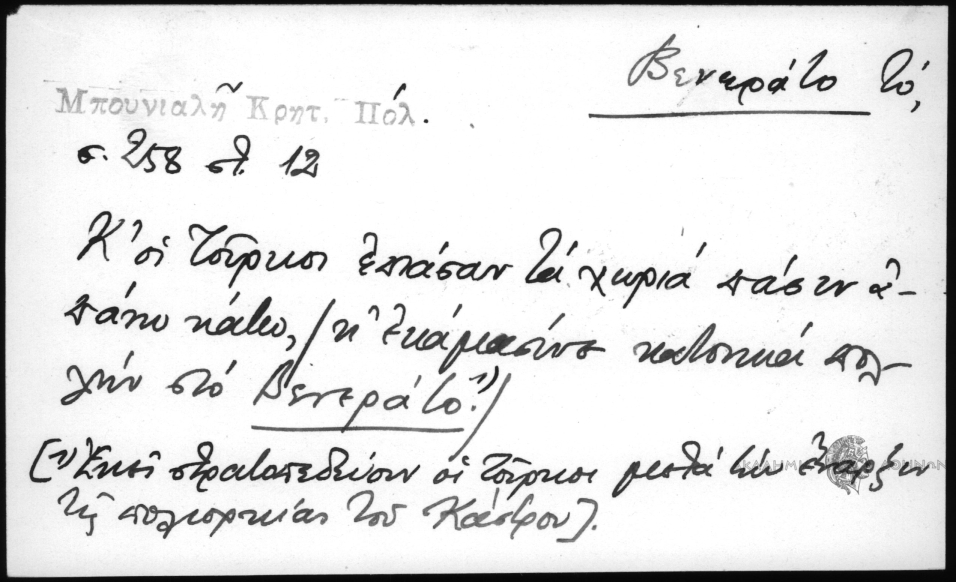 Βενεράτο τό,
Μπουνιαλῆ Κρητ. Πόλ.
σ. 258 στ. 12
Κ' οἱ Τοῦρκοι ἐπιάσαν τά χωριά πᾶσιν ἀ-
πάνω κάτω, / κ' ἐκάμασίνε κατοικιά πολ-
λήν στό Βενεράτο.¹⁾/
[¹⁾ Ἐκεῖ στρατοπεδεύουν οἱ Τοῦρκοι μετά τήν ἔναρξιν
τῆς πολιορκίας τοῦ Κάστρου].